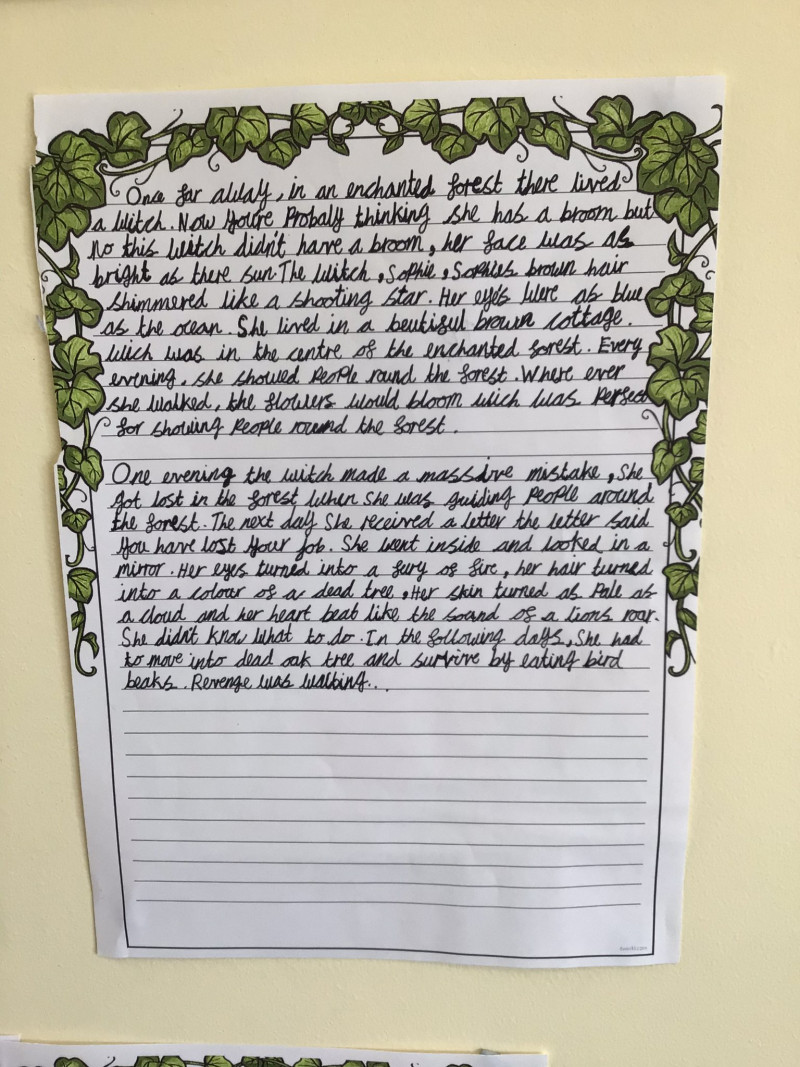 Once far away, in an enchanted forest there lived
a witch. Now You're Probaly thinking she has a broom but
No this witch didn't have a broom, her face was as
bright as there sun. The witch, Sophie, Sophies brown hair
shimmered like a shooting star. Her eyes were as blue
as the ocean. She lived in a beutiful brown cottage.
Wich was in the centre of the enchanted forest. Every
evening, she showed People round the forest. Where ever
she walked, the flowers would bloom wich was Perfect
for showing People round the forest.
One evening the witch made a massive mistake, She
got lost in the forest when she was guiding People around
the forest. The next day She received a letter the letter said
You have lost Your job. She went inside and looked in a
mirror. Her eyes turned into a fury of fire, her hair turned
into a colour of a dead tree, Her skin turned as Pale as
a cloud and her heart beat like the sound of a lions roar.
She didn't know what to do. In the following days, She had
to move into dead oak tree and survive by eating bird
beaks. Revenge was walking...